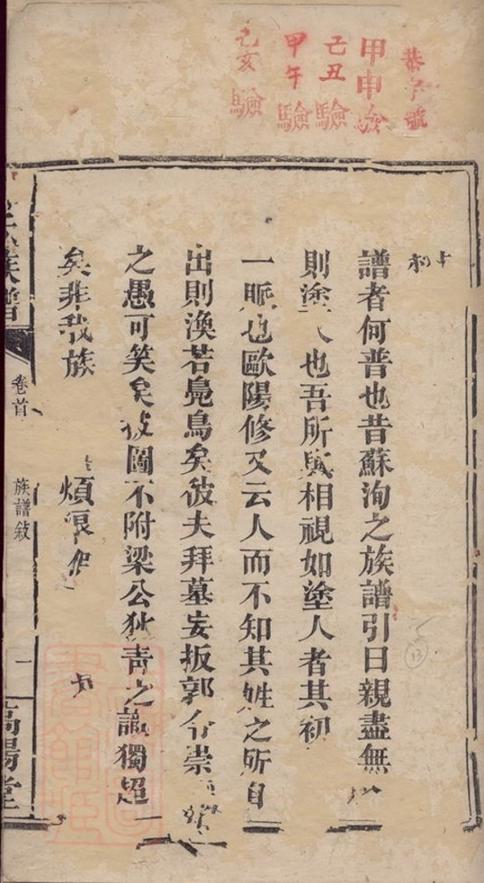 恭字號
甲申驗
己丑驗
甲午驗
乙亥驗
譜者何普也昔蘇洵之族譜引曰親盡無
則塗人也吾所與相視如塗人者其初
一脈也歐陽修又云人而不知其姓之所自
出則渙若鳧鳥矣彼夫拜墓妄扳郭令崇
之愚可笑矣彼圖不附梁公狄青之識獨超
矣非我族 煩浪
族譜
卷首
族譜敘
一
高陽堂